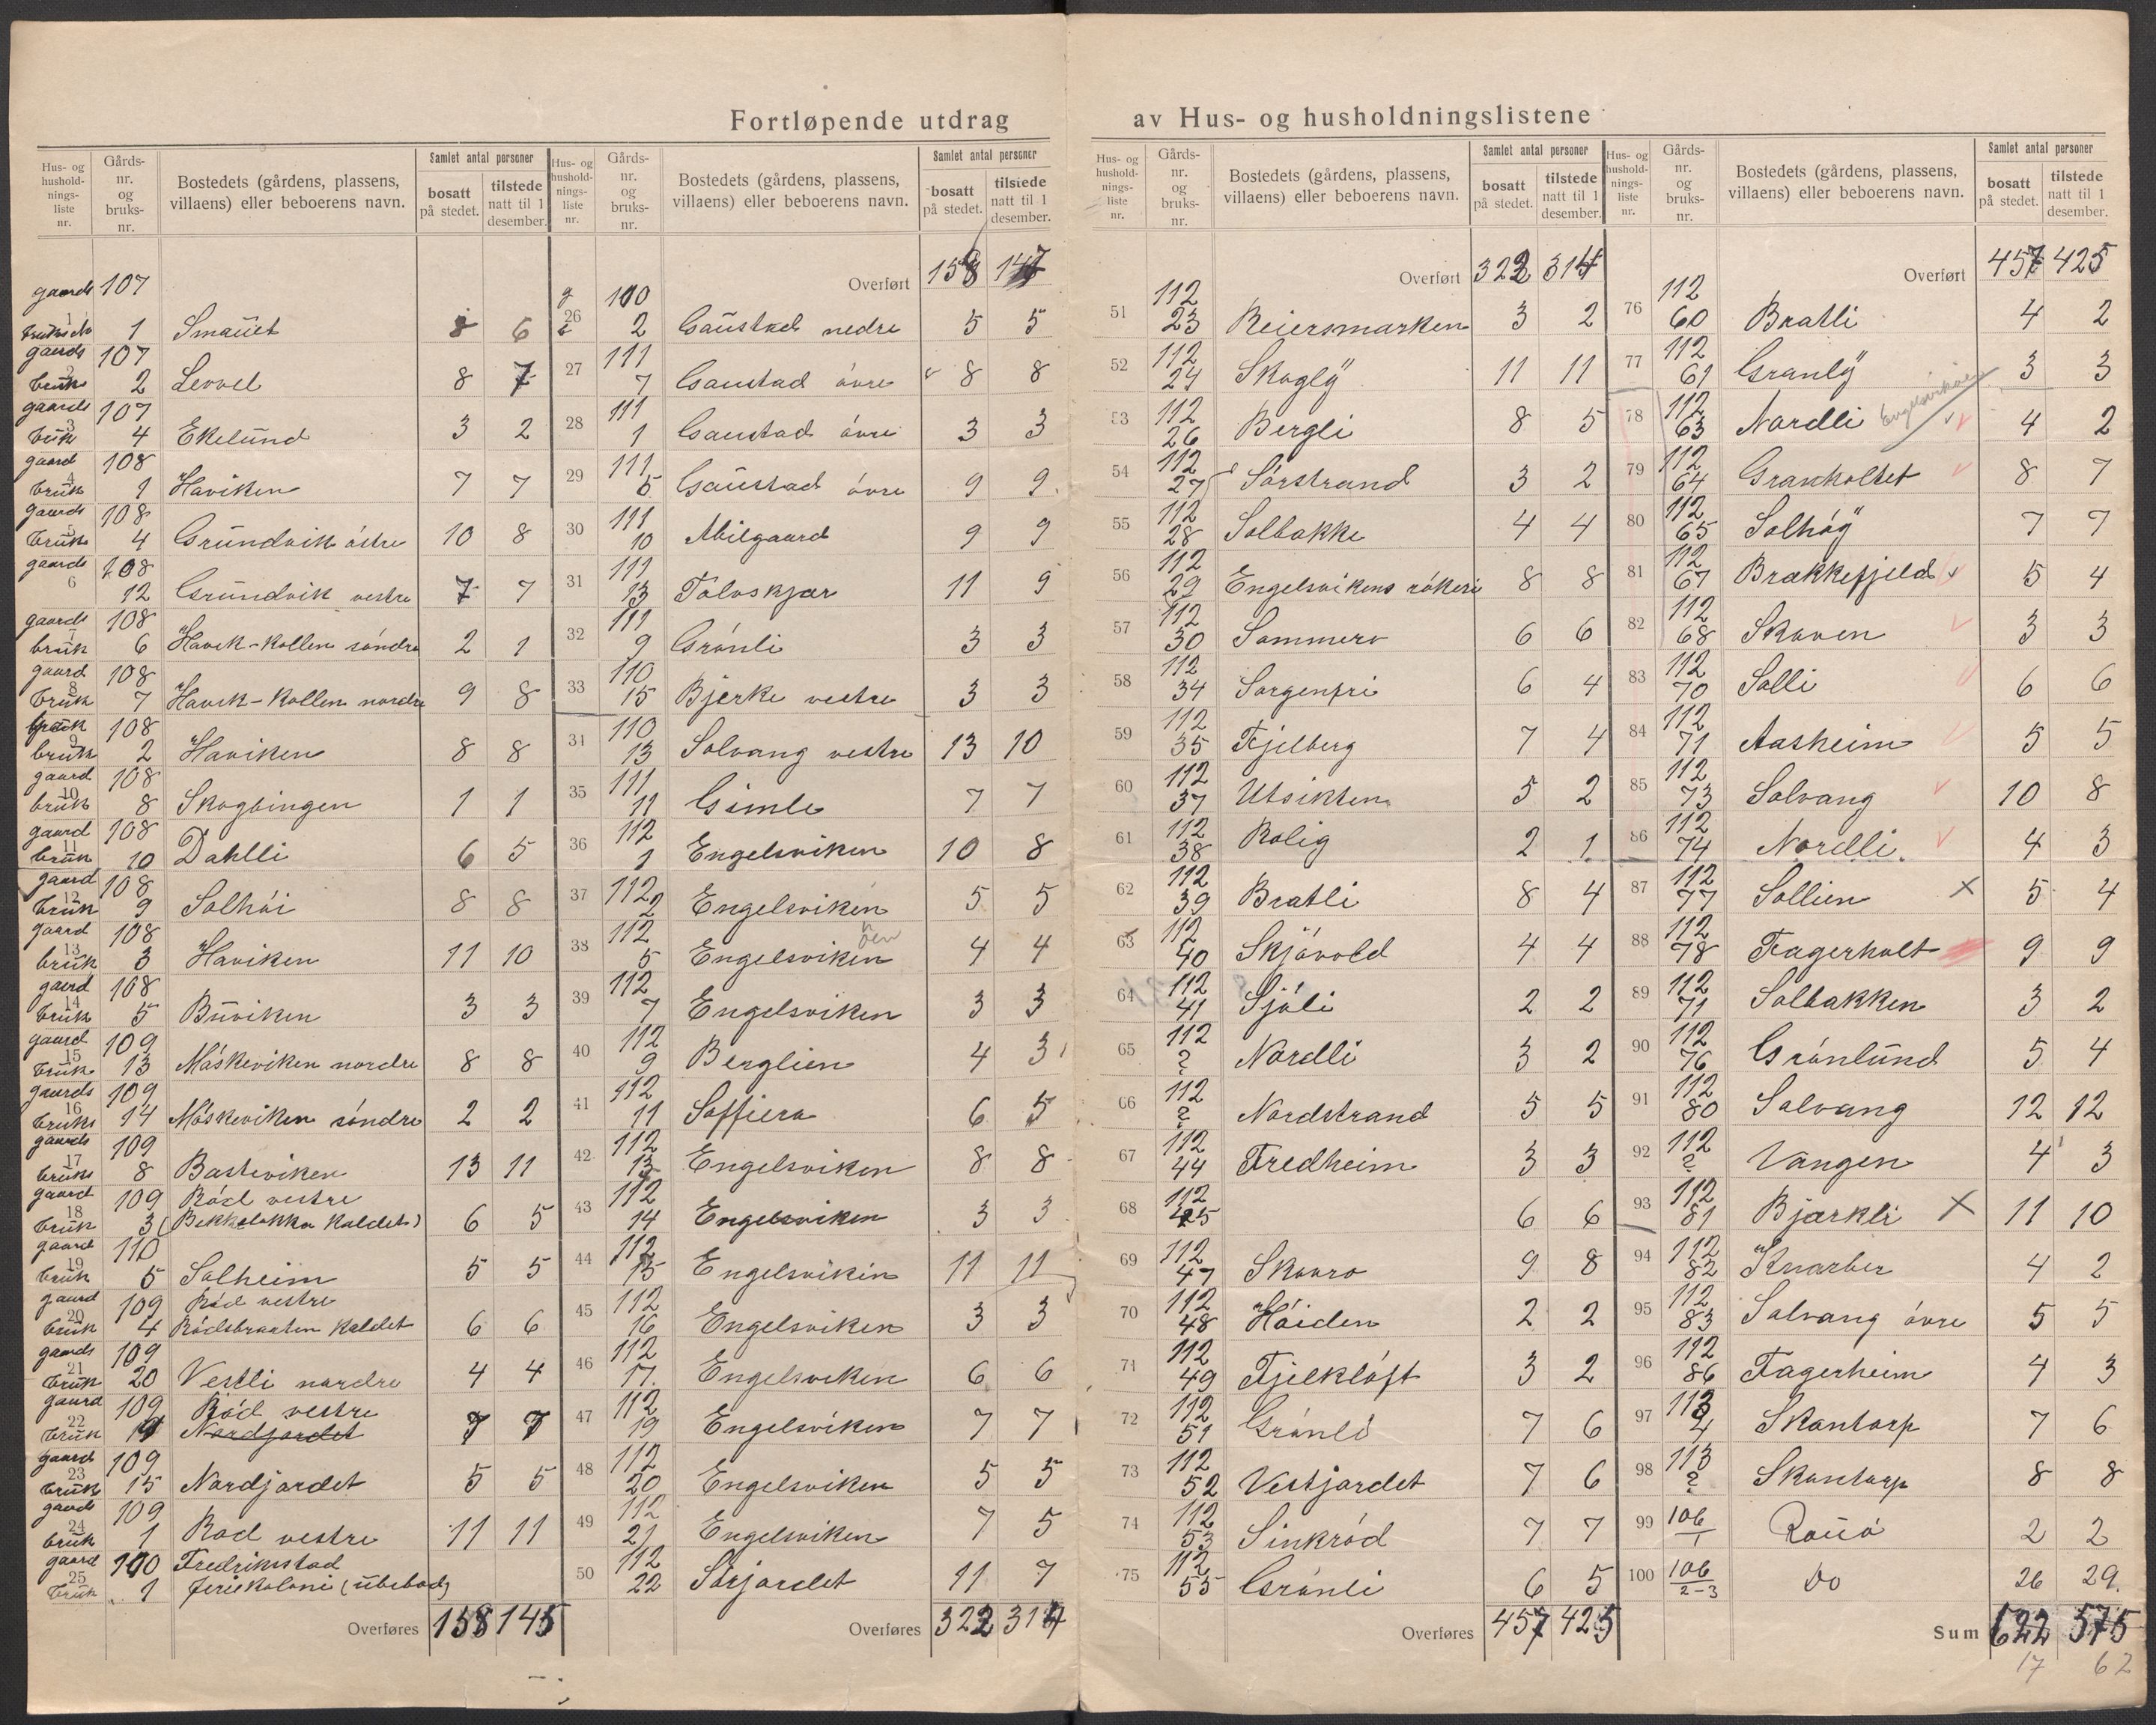 Fortløpende utdrag av Hus- og husholdningslistene
Hus- og husholdnings-liste nr. Gårds-nr. og bruks-nr. Bostedets (gårdens, plassens, villaens) eller beboerens navn. Samlet antal personer bosatt på stedet. tilstede natt til 1 desember.
gaards 107
1 bruks No 1 Smauet 8 6
gaards 107
2 bruk 2 Levvel 8 7
gaards 107
3 bruk 4 Ekelund 3 2
gaard 108
4 bruk 1 Haviken 7 7
gaards 108
5 bruk 4 Grundvik östre 10 8
gaards 108
6 12 Grundvik vestre 7 7
gaards 108
7 bruk 6 Havik-Kollen söndre 2 1
gaard 108
8 bruk 7 Havik-Kollen nordre 9 8
108
9 bruk 2 Haviken 8 8
gaard 108
10 bruk 8 Skogbingen 1 1
gaard 108
11 bruk 10 Dahlli 6 5
gaard 108
12 bruk 9 Solhöi 8 8
gaard 108
13 bruk 3 Haviken 11 10
gaard 108
14 bruk 5 Buviken 3 3
gaard 109
15 bruk 13 Möskeviken nordre 8 8
gaards 109
16 bruks 14 Möskeviken söndre 2 2
gaards 109
17 bruks 8 Basteviken 13 11
gaard 109 Röd vestre
18 bruk 3 (Bekkelökka kaldet) 6 5
gaard 110
19 bruk 5 Solheim 5 5
gaard 109 Röd vestre
20 bruk 4 Rödsbraaten kaldet 6 6
gaards 109
21 bruk 20 Vestli nordre 4 4
gaard 109 Röd vestre
22 bruk Nordjordet 7 7
gaard 109
23 bruk 15 Nordjordet 5 5
gaards 109
24 bruk 1 Röd vestre 11 11
gaard 110 Fredriksstad
25 bruk 1 feriekoloni (ubebod) 
Overføres 158 145
Hus- og hushold-nings-liste nr. Gårds-nr. og bruks-nr. Bostedets (gårdens, plassens, villaens) eller beboerens navn. Samlet antal personer bosatt på stedet. tilstede natt til 1 desember.
Overført 158 147
g 110
26 b 2 Gaustad nedre 5 5
27 111 7 Gaustad övre 8 8
28 111 1 Gaustad övre 3 3
29 111 5 Gaustad övre 9 9
30 111 10 Milgaard 9 9
31 111 13 Tolvskjær 11 9
32 111 9 Grönli 3 3
33 110 15 Bjerke vestre 3 3
34 110 13 Solvang vestre 13 10
35 111 11 Gimle 7 7
36 112 1 Engelsviken 10 8
37 112 2 Engelsviken 5 5
38 112 5 Engelsviken 4 4
39 112 7 Engelsviken 3 3
40 112 9 Berglien 4 3
41 112 11 Soffiero 6 5
42 112 13 Engelsviken 8 8
43 112 14 Engelsviken 3 3
44 112 15 Engelsviken 11 11
45 112 16 Engelsviken 3 3
46 112 17 Engelsviken 6 6
47 112 19 Engelsviken 7 7
48 112 20 Engelsviken 5 5
49 112 21 Engelsviken 7 5
50 112 22 Sörjordet 11 7
Overføres 322 314
Hus- og hushold-nings-liste nr. Gårds-nr. og bruks-nr. Bostedets (gårdens, plassens, villaens) eller beboerens navn. Samlet antal personer bosatt på stedet. tilstede natt til 1 desember.
Overført 322 314
51 112 23 Reiersmarken 3 2
52 112 24 Skogly 11 11
53 112 26 Bergli 8 5
54 112 27 Sörstrand 3 2
55 112 28 Solbakke 4 4
56 112 29 Engelsvikens rökeri 8 8
57 112 30 Sommerv 6 6
58 112 34 Sorgenfri 6 4
59 112 35 Fjelberg 7 4
60 112 37 Utsikten 5 2
61 112 38 Rolig 2 1
62 112 39 Bratli 8 4
63 112 40 Skjövold 4 4
64 112 41 Sjöli 2 2
65 112 ? Nordli 3 2
66 112 ? Nordstrand 5 5
67 112 44 Fredheim 3 3
68 112 45 6 6
69 112 47 Skovro 9 8
70 112 48 Höiden 2 2
71 112 49 Fjelklöft 3 2
72 112 51 Grönli 7 6
73 112 52 Vestjordet 7 6
74 112 53 Sinkröd 7 7
75 112 55 Grönli 6 5
Overføres 457 425
Hus- og hushold-nings-liste nr. Gårds-nr. og bruks-nr. Bostedets (gårdens, plassens, villaens) eller beboerens navn. Samlet antal personer bosatt på stedet. tilstede natt til 1 desember.
Overført 457 425
76 112 60 Bratli 4 2
77 112 61 Granly 3 3
78 112 63 Nordli Engelsviken 4 2
79 112 64 Grankoltet 8 7
80 112 65 Solhög 7 7
81 112 67 Brakkefjeld 5 4
82 112 68 Skoven 3 3
83 112 70 Solli 6 6
84 112 71 Aasheim 5 5
85 112 73 Solvang 10 8
86 112 74 Nordli 4 3
87 112 77 Sollien X 5 4
88 112 78 Fagerholt 9 9
89 112 71 Solbakken 3 2
90 112 76 Grönlund 5 4
91 112 80 Solvang 12 12
92 112 ? Vangen 4 3
93 112 81 Bjørkli X 11 10
94 112 82 Knarber 4 2
95 112 83 Solvang övre 5 5
96 112 86 Fagerheim 4 3
97 113 4 Skantorp 7 6
98 113 ? Skantorp 8 8
99 106 1 Rauö 2 2
100 106 2-3 Do 26 29.
Sum 622 575
17 62